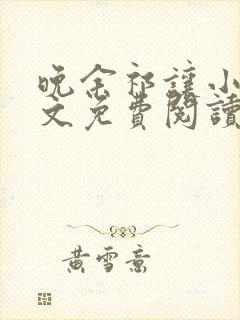 晚余祁讓小
文免費閱讀
黃雪意